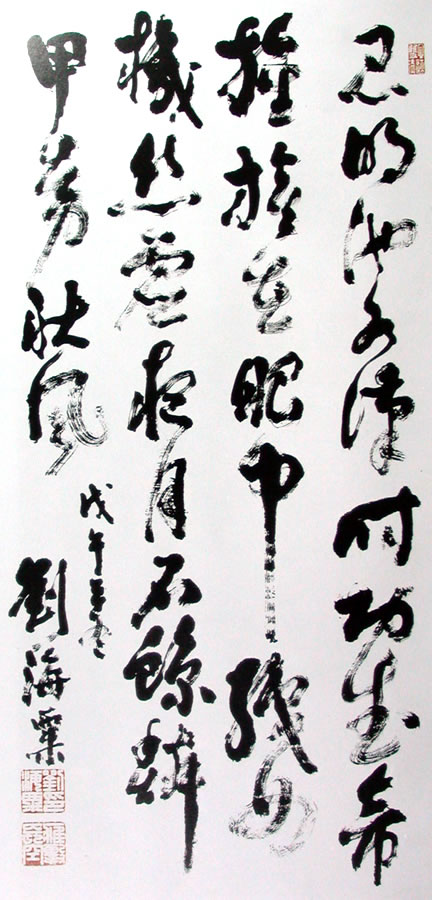 昆明池水漢時功武帝
旌旗在眼中織女
機絲虛夜月石鯨鱗
甲動秋風
戊午
劉海粟